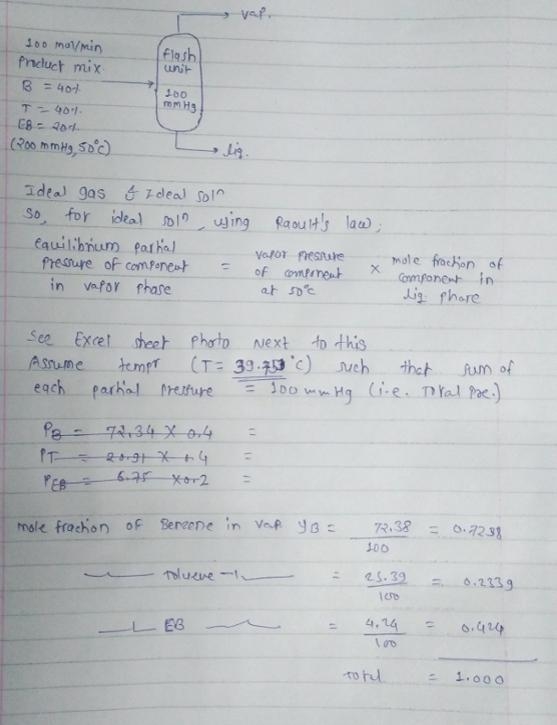 vap.
100 mol/min
Product mix.
B = 40%
T = 40%
EB = 20%
(200 mmHg, 50°C)
flash
unit
100
mmHg
liq.
Ideal gas & Ideal soln
So, for ideal soln, using Raoult's law;
equilibrium partial
pressure of component
in vapor phase
=
vapor pressure
of component
at 50°C
×
mole fraction of
component in
liq. phase
See Excel sheet photo Next to this
Assume tempr (T= 39.753°C) such that sum of
each partial pressure = 100 mmHg (i.e. Total Pre.)
PB = 72.34 × 0.4 =
PT = 20.91 × 0.4 =
PEB = 6.75 × 0.2 =
mole fraction of Benzene in vap yB = 72.38 / 100 = 0.7238
Toluene = 23.39 / 100 = 0.2339
EB = 4.24 / 100 = 0.424
Total = 1.000